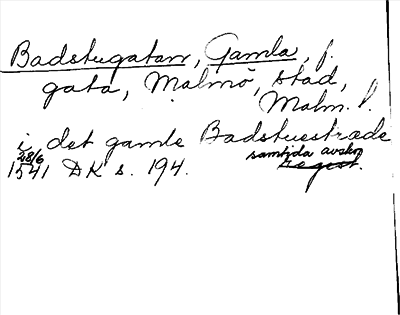 Badstugatan, Gamla, f.
gata, Malmö, stad,
Malm. l.
i det gamle Badstuestræde
28/6 samtida avskr.
1541 DK s. 194. Regest.